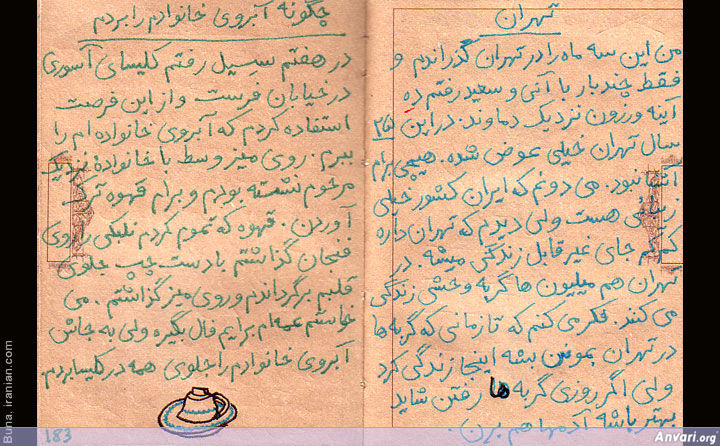 تهران
من این سه ماه را در تهران گذراندم و
فقط چند بار با آنی و سعید رفتم ده
آینه ورزون نزدیک دماوند. در این ۲۵
سال تهران خیلی عوض شده. هیچی برام
آشنا نبود. می دونم که ایران کشور خیلی
زیبائی هست ولی دیدم که تهران داره
کم کم جای غیر قابل زندگی میشه. در
تهران هم میلیون ها گربه وحشی زندگی
می کنند. فکر می کنم که تا زمانی که گربه ها
در تهران بمونن بشه اینجا زندگی کرد
ولی اگر روزی گربه ها رفتن شاید
بهتر باشه آدمها هم برن.
چگونه آبروی خانوادم را بردم
در هفتم سپیل رفتم کلیسای آسوری
در خیابان فرست و از این فرصت
استفاده کردم که آبروی خانواده ام را
ببرم. روی میز وسط با خانوادهٔ نزدیک
مرحوم نشسته بودم و برام قهوه ترک
آوردن. قهوه که تموم کردم نلبکی را روی
فنجان گذاشتم با دست چپ جلوی
قلبم برگرداندم و روی میز گذاشتم. می
خواستم عمه‌ام برایم فال بگیره ولی به جاش
آبروی خانوادم را جلوی همه در کلیسا بردم.
183
Buna, iranian.com
Anvari.org